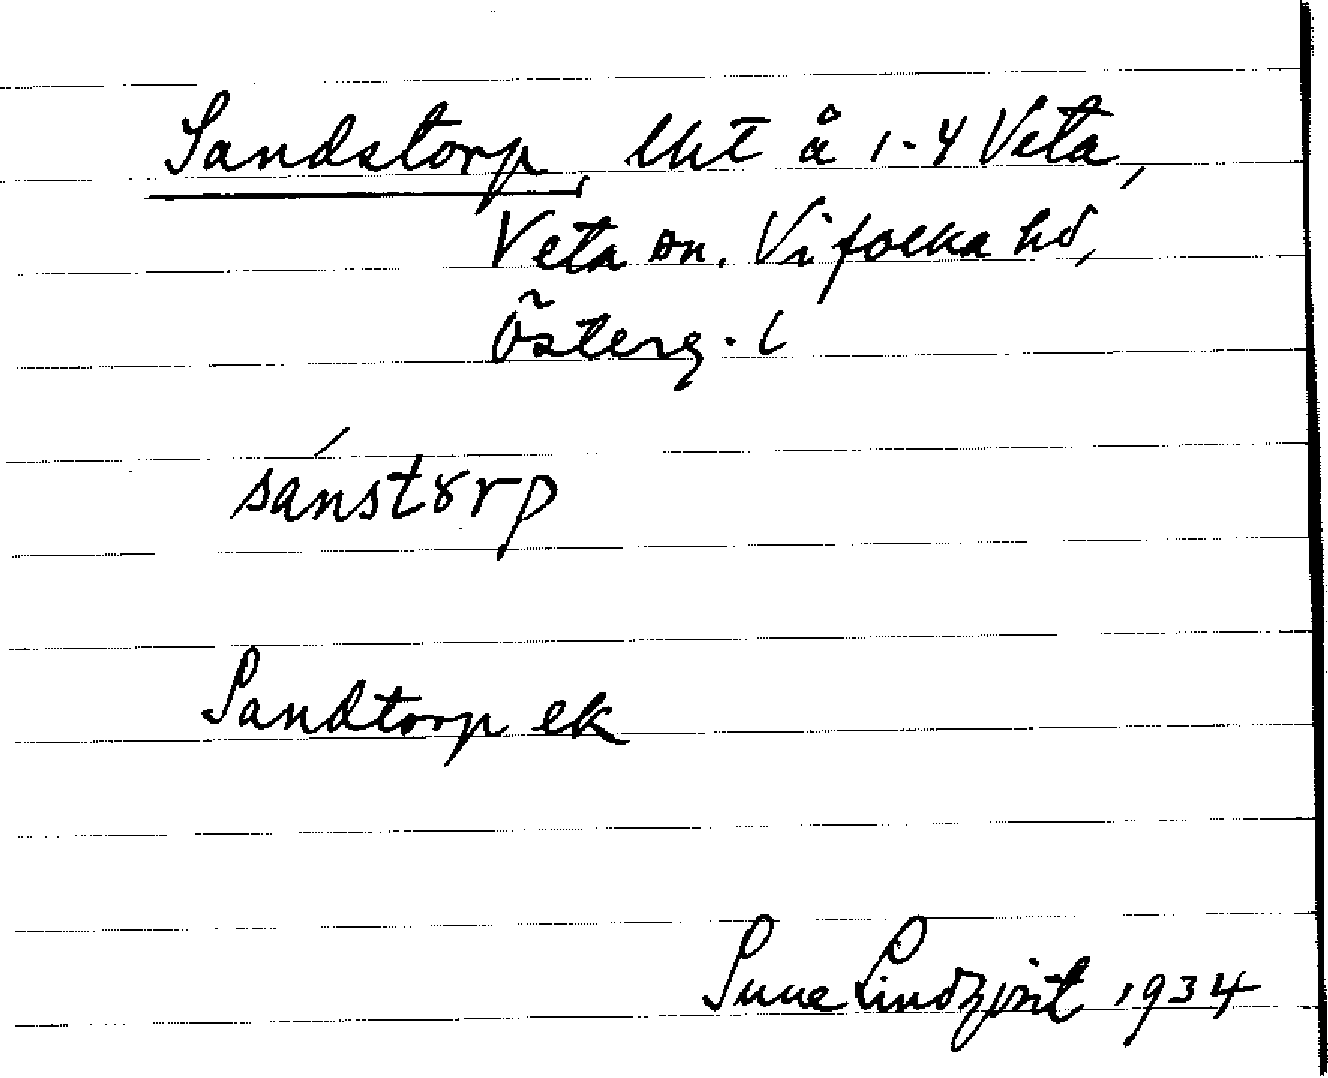 Sandstorp, lht å 1-4 Veta,
Veta sn. Vifolka hd,
Österg. l
sánstorp
Sandtorp ek
Sune Lindqvist 1934